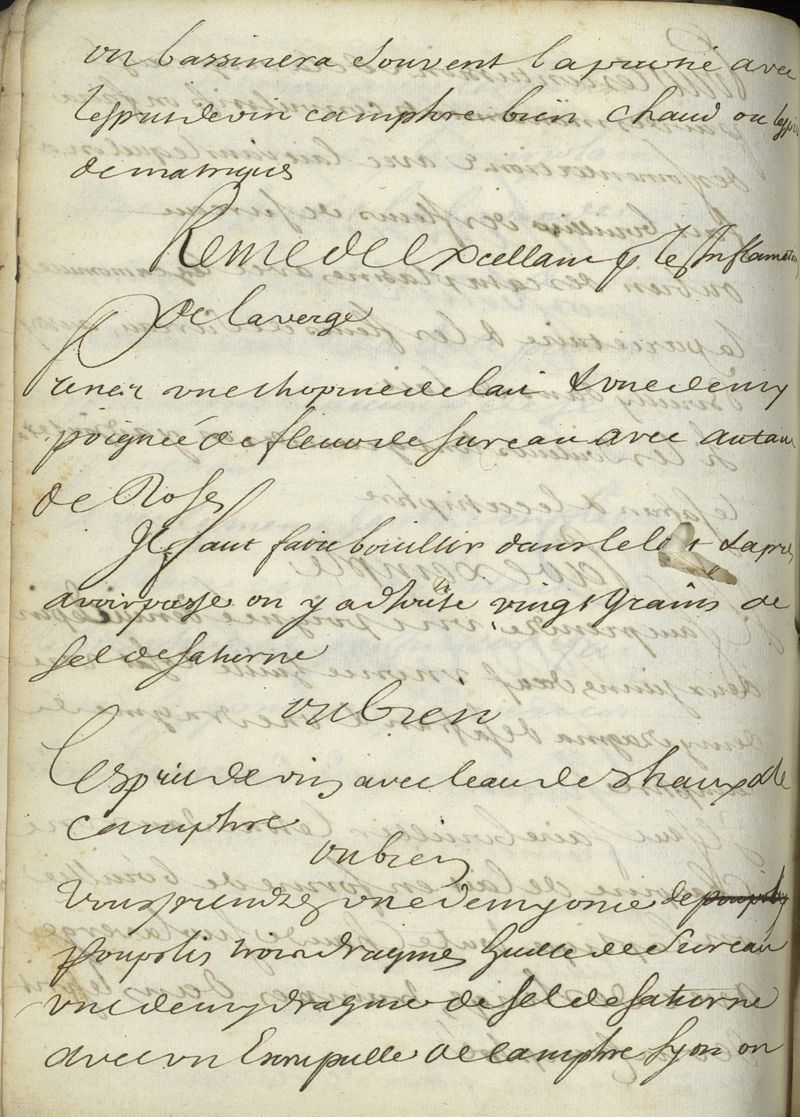 on bassinera souvent la partie avec
lesprit de vin camphre bien chaud ou
de matrices
Remede Excellant p les Inflamations
de la verge
Prener une chopine de lait & une demy
poignée de fleurs de sureau avec autant
de Roses
Jl faut faire bouillir dans le lait & apres
avoir passe on y adhoute vingt Grains de
sel de saturne
ou bien
Lesprit de vin avec leau de chaux & le
camphre
ou bien
Vous prendrez une demy once de
poupolis trois dragmes huille de sureau
une demy dragme de sel de saturne
avec un Escrupulle de camphre syon on